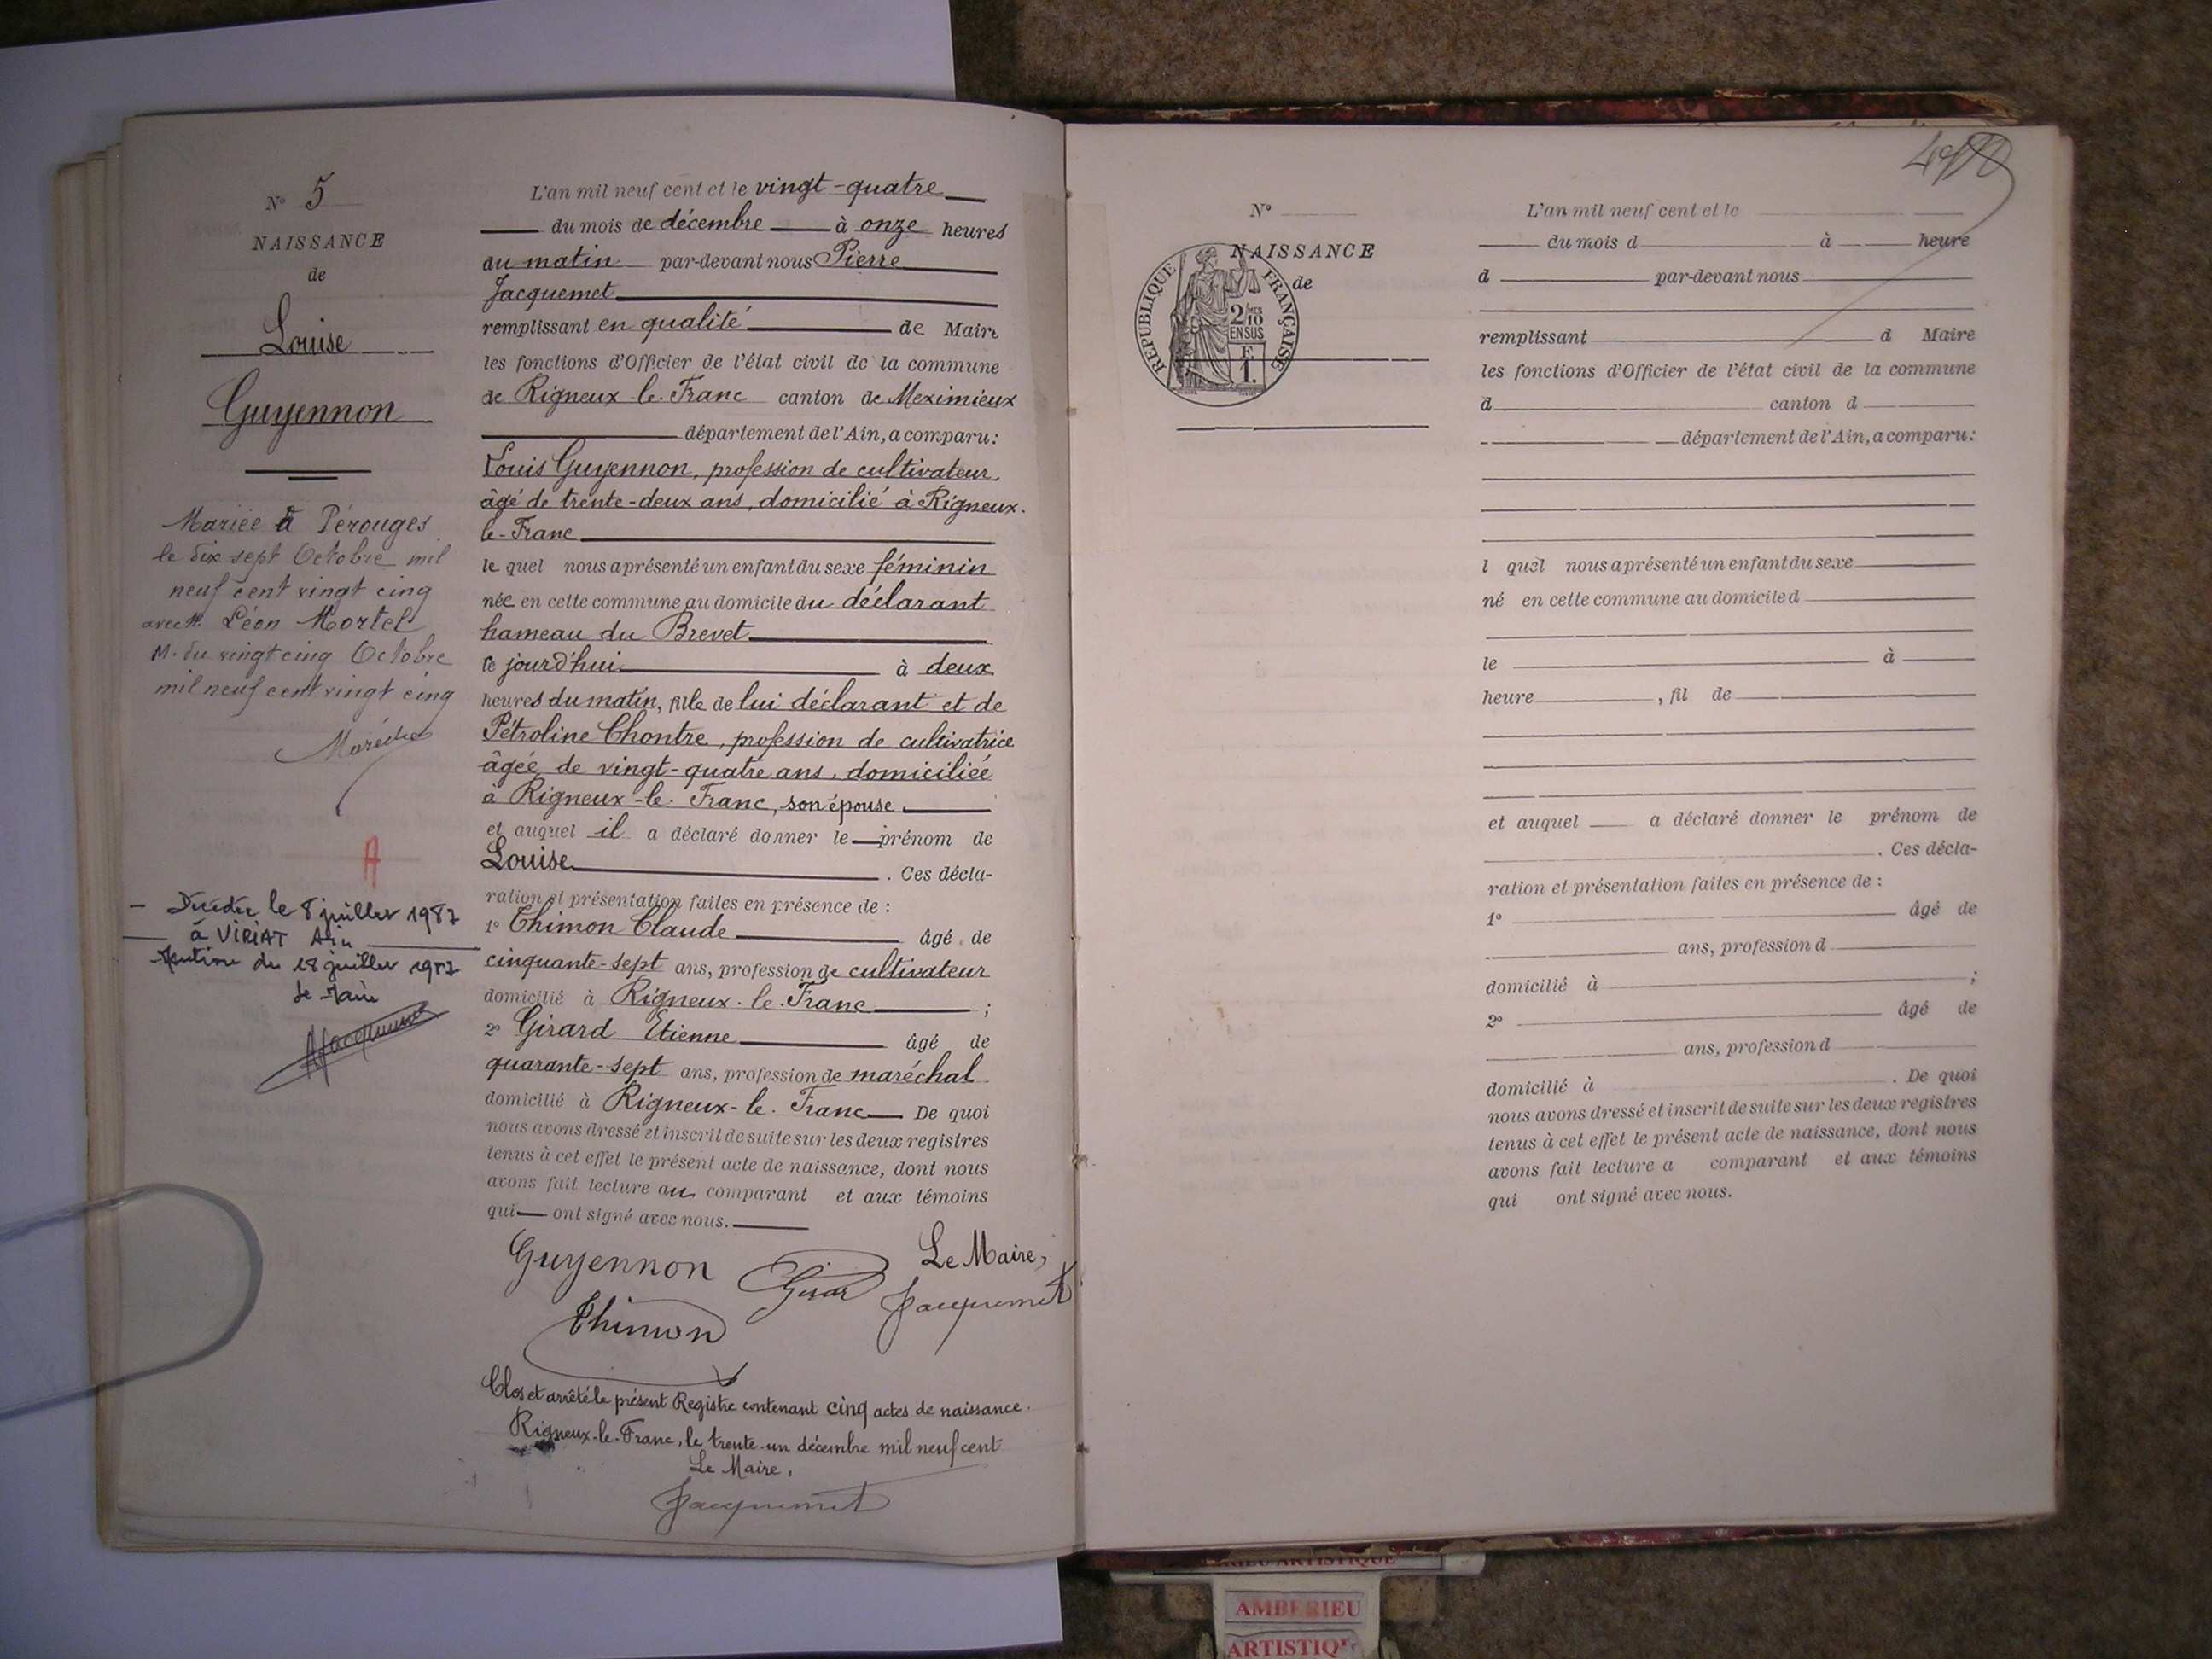 N° 5
NAISSANCE
de
Louise
Guyennon
Mariée à Pérouges
le dix sept Octobre mil
neuf cent vingt cinq
avec M. Léon Mortel
M. du vingt cinq Octobre
mil neuf cent vingt cinq
A
– Décédée le 8 juillet 1987
à VIRIAT Ain
Mention du 18 juillet 1987
Le Maire
L'an mil neuf cent et le vingt-quatre
du mois de décembre à onze heures
du matin par-devant nous Pierre
Jacquemet
remplissant en qualité de Maire
les fonctions d'Officier de l'état civil de la commune
de Rigneux-le-Franc canton de Meximieux
département de l'Ain, a comparu:
Louis Guyennon, profession de cultivateur,
âgé de trente-deux ans, domicilié à Rigneux-
le-Franc
le quel nous a présenté un enfant du sexe féminin
née en cette commune au domicile du déclarant
hameau du Brevet
ce jourd'hui à deux
heures du matin, fille de lui déclarant et de
Pétroline Chontre, profession de cultivatrice
âgée de vingt-quatre ans, domiciliée
à Rigneux-le-Franc, son épouse
et auquel il a déclaré donner le prénom de
Louise. Ces décla-
ration et présentation faites en présence de :
1° Thimon Claude âgé de
cinquante-sept ans, profession de cultivateur
domicilié à Rigneux-le-Franc ;
2° Girard Etienne âgé de
quarante-sept ans, profession de maréchal
domicilié à Rigneux-le-Franc De quoi
nous avons dressé et inscrit de suite sur les deux registres
tenus à cet effet le présent acte de naissance, dont nous
avons fait lecture au comparant et aux témoins
qui ont signé avec nous.
Guyennon Girard Le Maire,
Thimon Jacquemet
Clos et arrêté le présent Registre contenant cinq actes de naissance.
Rigneux-le-Franc, le trente-un décembre mil neuf cent
Le Maire,
Jacquemet
N°
NAISSANCE
de
REPUBLIQUE FRANÇAISE
2/10
EN SUS
F.
1.
L'an mil neuf cent et le
du mois d à heure
d par-devant nous
remplissant d Maire
les fonctions d'Officier de l'état civil de la commune
d canton d
département de l'Ain, a comparu:
l quel nous a présenté un enfant du sexe
né en cette commune au domicile d
le à
heure , fil de
et auquel a déclaré donner le prénom de
. Ces décla-
ration et présentation faites en présence de :
1° âgé de
ans, profession d
domicilié à ;
2° âgé de
ans, profession d
domicilié à . De quoi
nous avons dressé et inscrit de suite sur les deux registres
tenus à cet effet le présent acte de naissance, dont nous
avons fait lecture a comparant et aux témoins
qui ont signé avec nous.
AMBERIEU
ARTISTIQUE